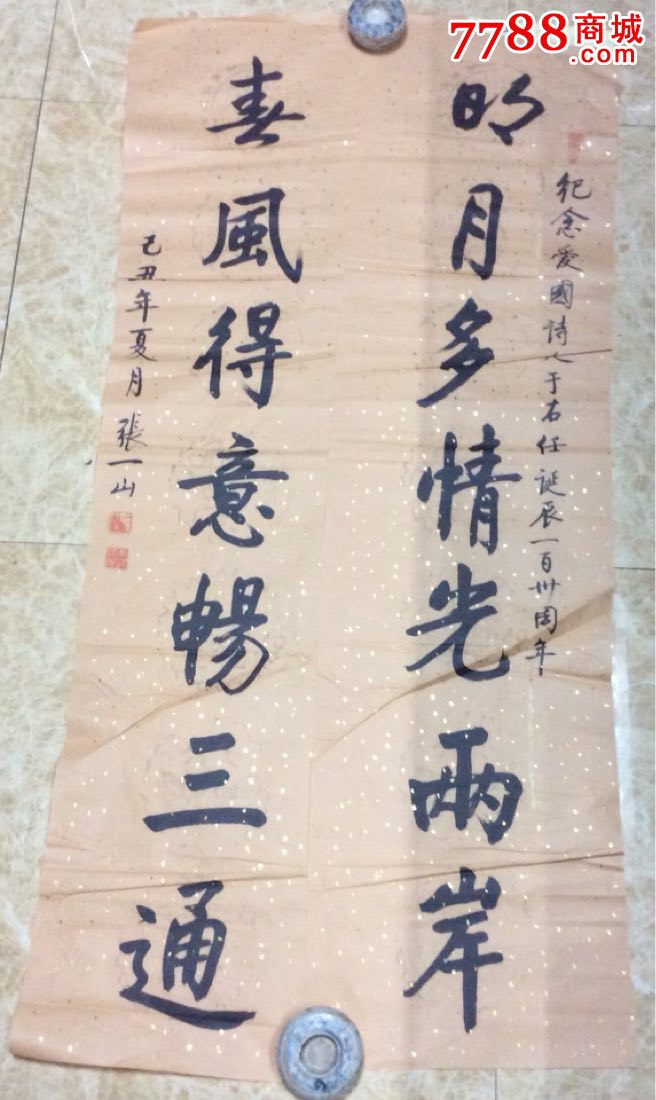 7788商城
.com
紀念愛國詩人于右任誕辰一百卅周年
明月多情光兩岸
春風得意暢三通
己丑年夏月 張一山